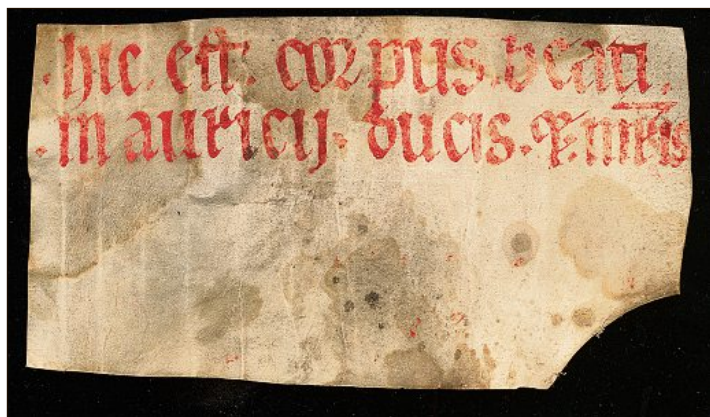 · hic · est · corpus · beati ·
· mauricij · ducis · ⁊ · mr̅is